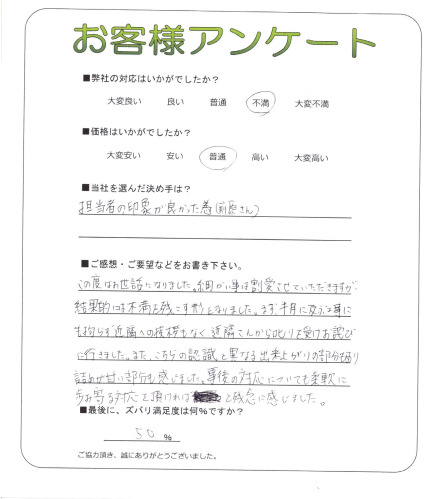 お客様アンケート
■弊社の対応はいかがでしたか?
大変良い 良い 普通 不満 大変不満
■価格はいかがでしたか?
大変安い 安い 普通 高い 大変高い
■当社を選んだ決め手は?
担当者の印象が良かった為(前原さん)
■ご感想・ご要望などをお書き下さい。
この度はお世話になりました。細かい事は割愛させていただきますが
結果的には不満を残こす形となりました。まず、1ヶ月に及ぶ工事に
も拘らず近隣への挨拶もなく近隣さんから叱りを受けお詫び
に行きました。また、こちらの認識と異なる出来上がりの部分も有り
詰めが甘い部分も感じました。事後の対応についても柔軟に
歩み寄る対応を頂ければ と残念に感じました。
■最後に、ズバリ満足度は何%ですか?
50 %
ご協力頂き、誠にありがとうございました。